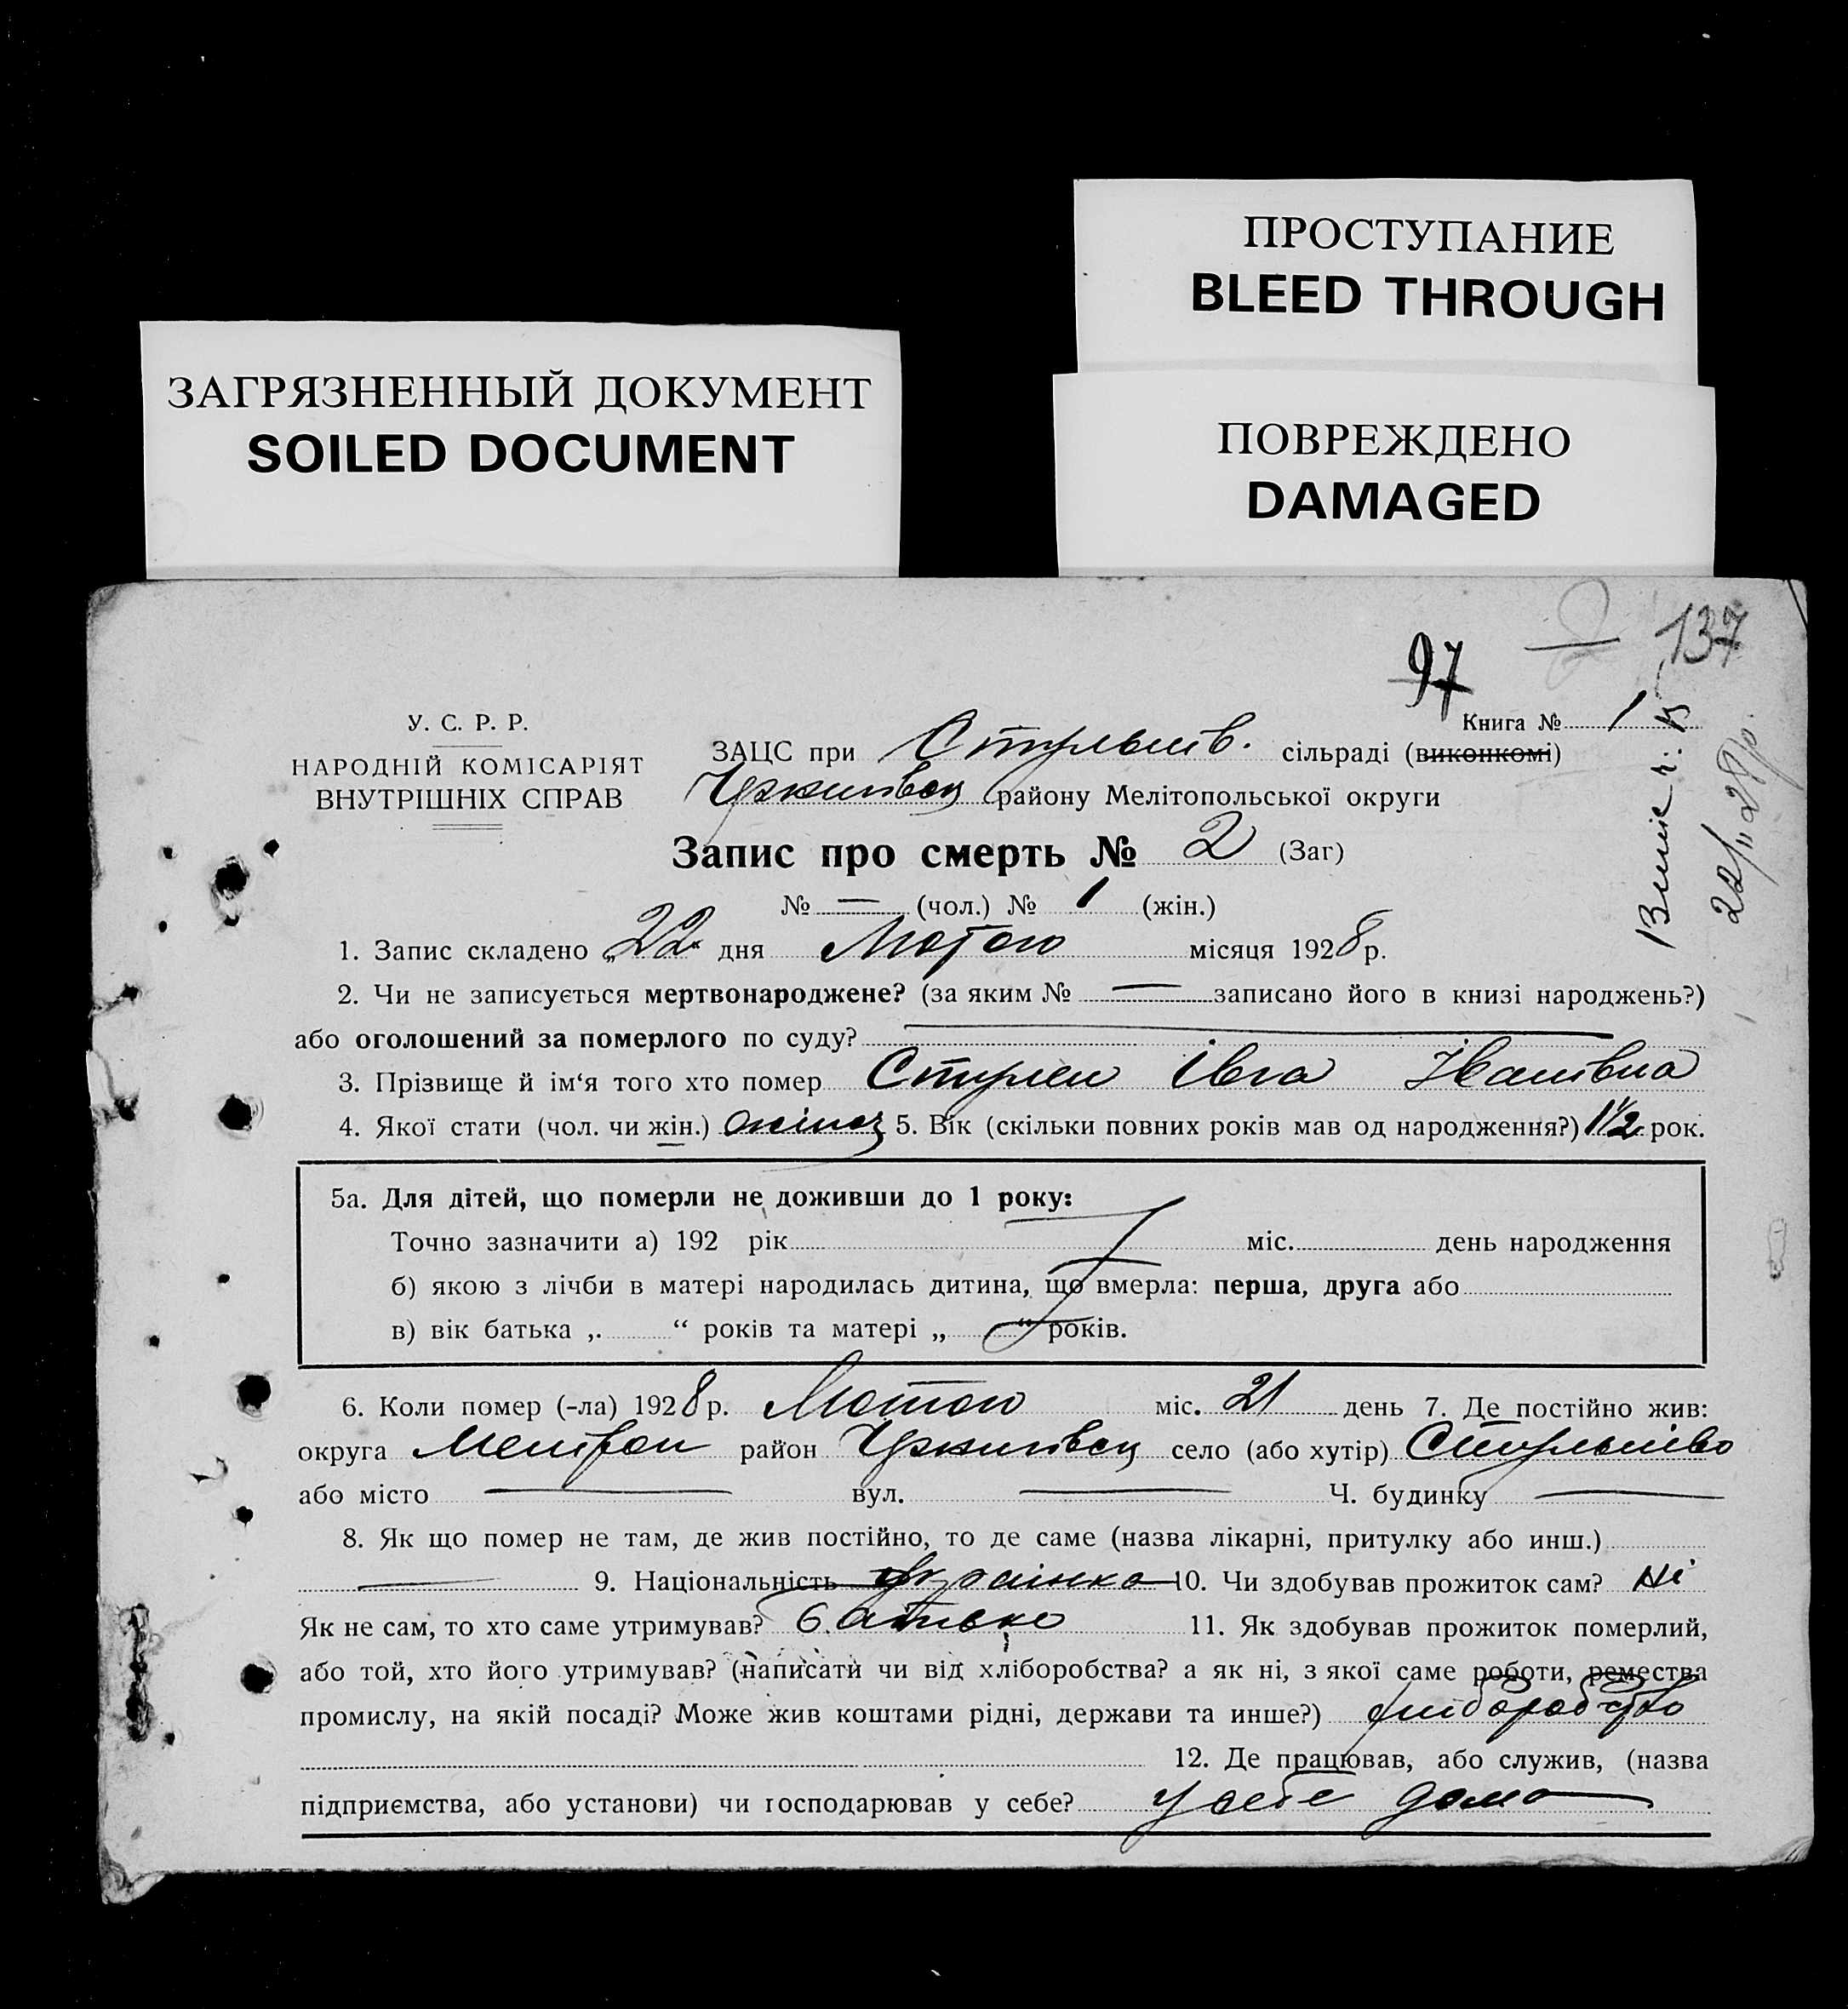 ПРОСТУПАНИЕ
BLEED THROUGH
ЗАГРЯЗНЕННЫЙ ДОКУМЕНТ
SOILED DOCUMENT
ПОВРЕЖДЕНО
DAMAGED
137
97
У. С. Р. Р.
НАРОДНІЙ КОМІСАРІЯТ
ВНУТРІШНІХ СПРАВ
Книга № 1
ЗАЦС при сільраді (виконкомі)
району Мелітопольської округи
22/II 28р.
Запис про смерть № 2 (Заг)
№ — (чол.) № 1 (жін.)
1. Запис складено „22" дня Лютого місяця 1928 р.
2. Чи не записується мертвонароджене? (за яким № — записано його в книзі народжень?)
або оголошений за померлого по суду? —
3. Прізвище й ім‘я того хто помер Івга Іванівна
4. Якої стати (чол. чи жін.) 5. Вік (скільки повних років мав од народження?) 1½ рок.
5а. Для дітей, що померли не доживши до 1 року:
Точно зазначити а) 192 рік міс. день народження
б) якою з лічби в матері народилась дитина, що вмерла: перша, друга або
в) вік батька „ “ років та матері „ “ років.
6. Коли помер (-ла) 1928 р. Лютого міс. 21 день 7. Де постійно жив:
округа район село (або хутір)
або місто — вул. — Ч. будинку —
8. Як що помер не там, де жив постійно, то де саме (назва лікарні, притулку або инш.)
— 9. Національність Українка 10. Чи здобував прожиток сам? Ні
Як не сам, то хто саме утримував? батько 11. Як здобував прожиток померлий,
або той, хто його утримував? (написати чи від хліборобства? а як ні, з якої саме роботи, ремества
промислу, на якій посаді? Може жив коштами рідні, держави та инше?) хліборобство
12. Де працював, або служив, (назва
підприємства, або установи) чи господарював у себе? у себе дома